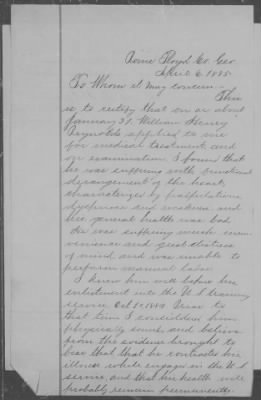 Rome Floyd Co. Geo
April 6. 1885
To Whom it May concern,-
This
is to certify that on or about
January 31, William Henry
Reynolds applied to me
for medical treatment and
on examination I found that
he was suffering with functional
derangement of the heart,
characterized by palpitation,
dyspnoea and weakness and
his general health was bad
He was suffering much incon-
venience and great distress
of mind and was unable to
perform manual labor
I knew him well before his
enlistment into the U.S.
service Oct. Prior to
that time I considered him
physically sound, and believe
from the evidence brought to
bear that that he contracted his
illness while engaged in the U.S.
service, and that his health will
probably remain permanently